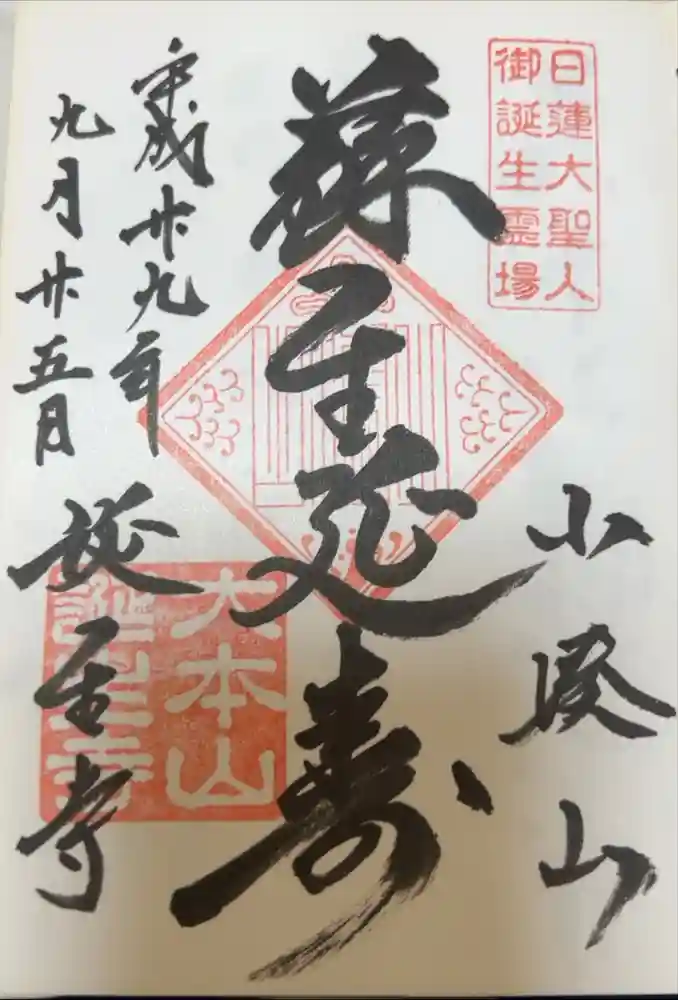 日蓮大聖人
御誕生霊場
小湊山
蘇生延寿
大本山
誕生寺
平成廿九年
九月廿五日
誕生寺